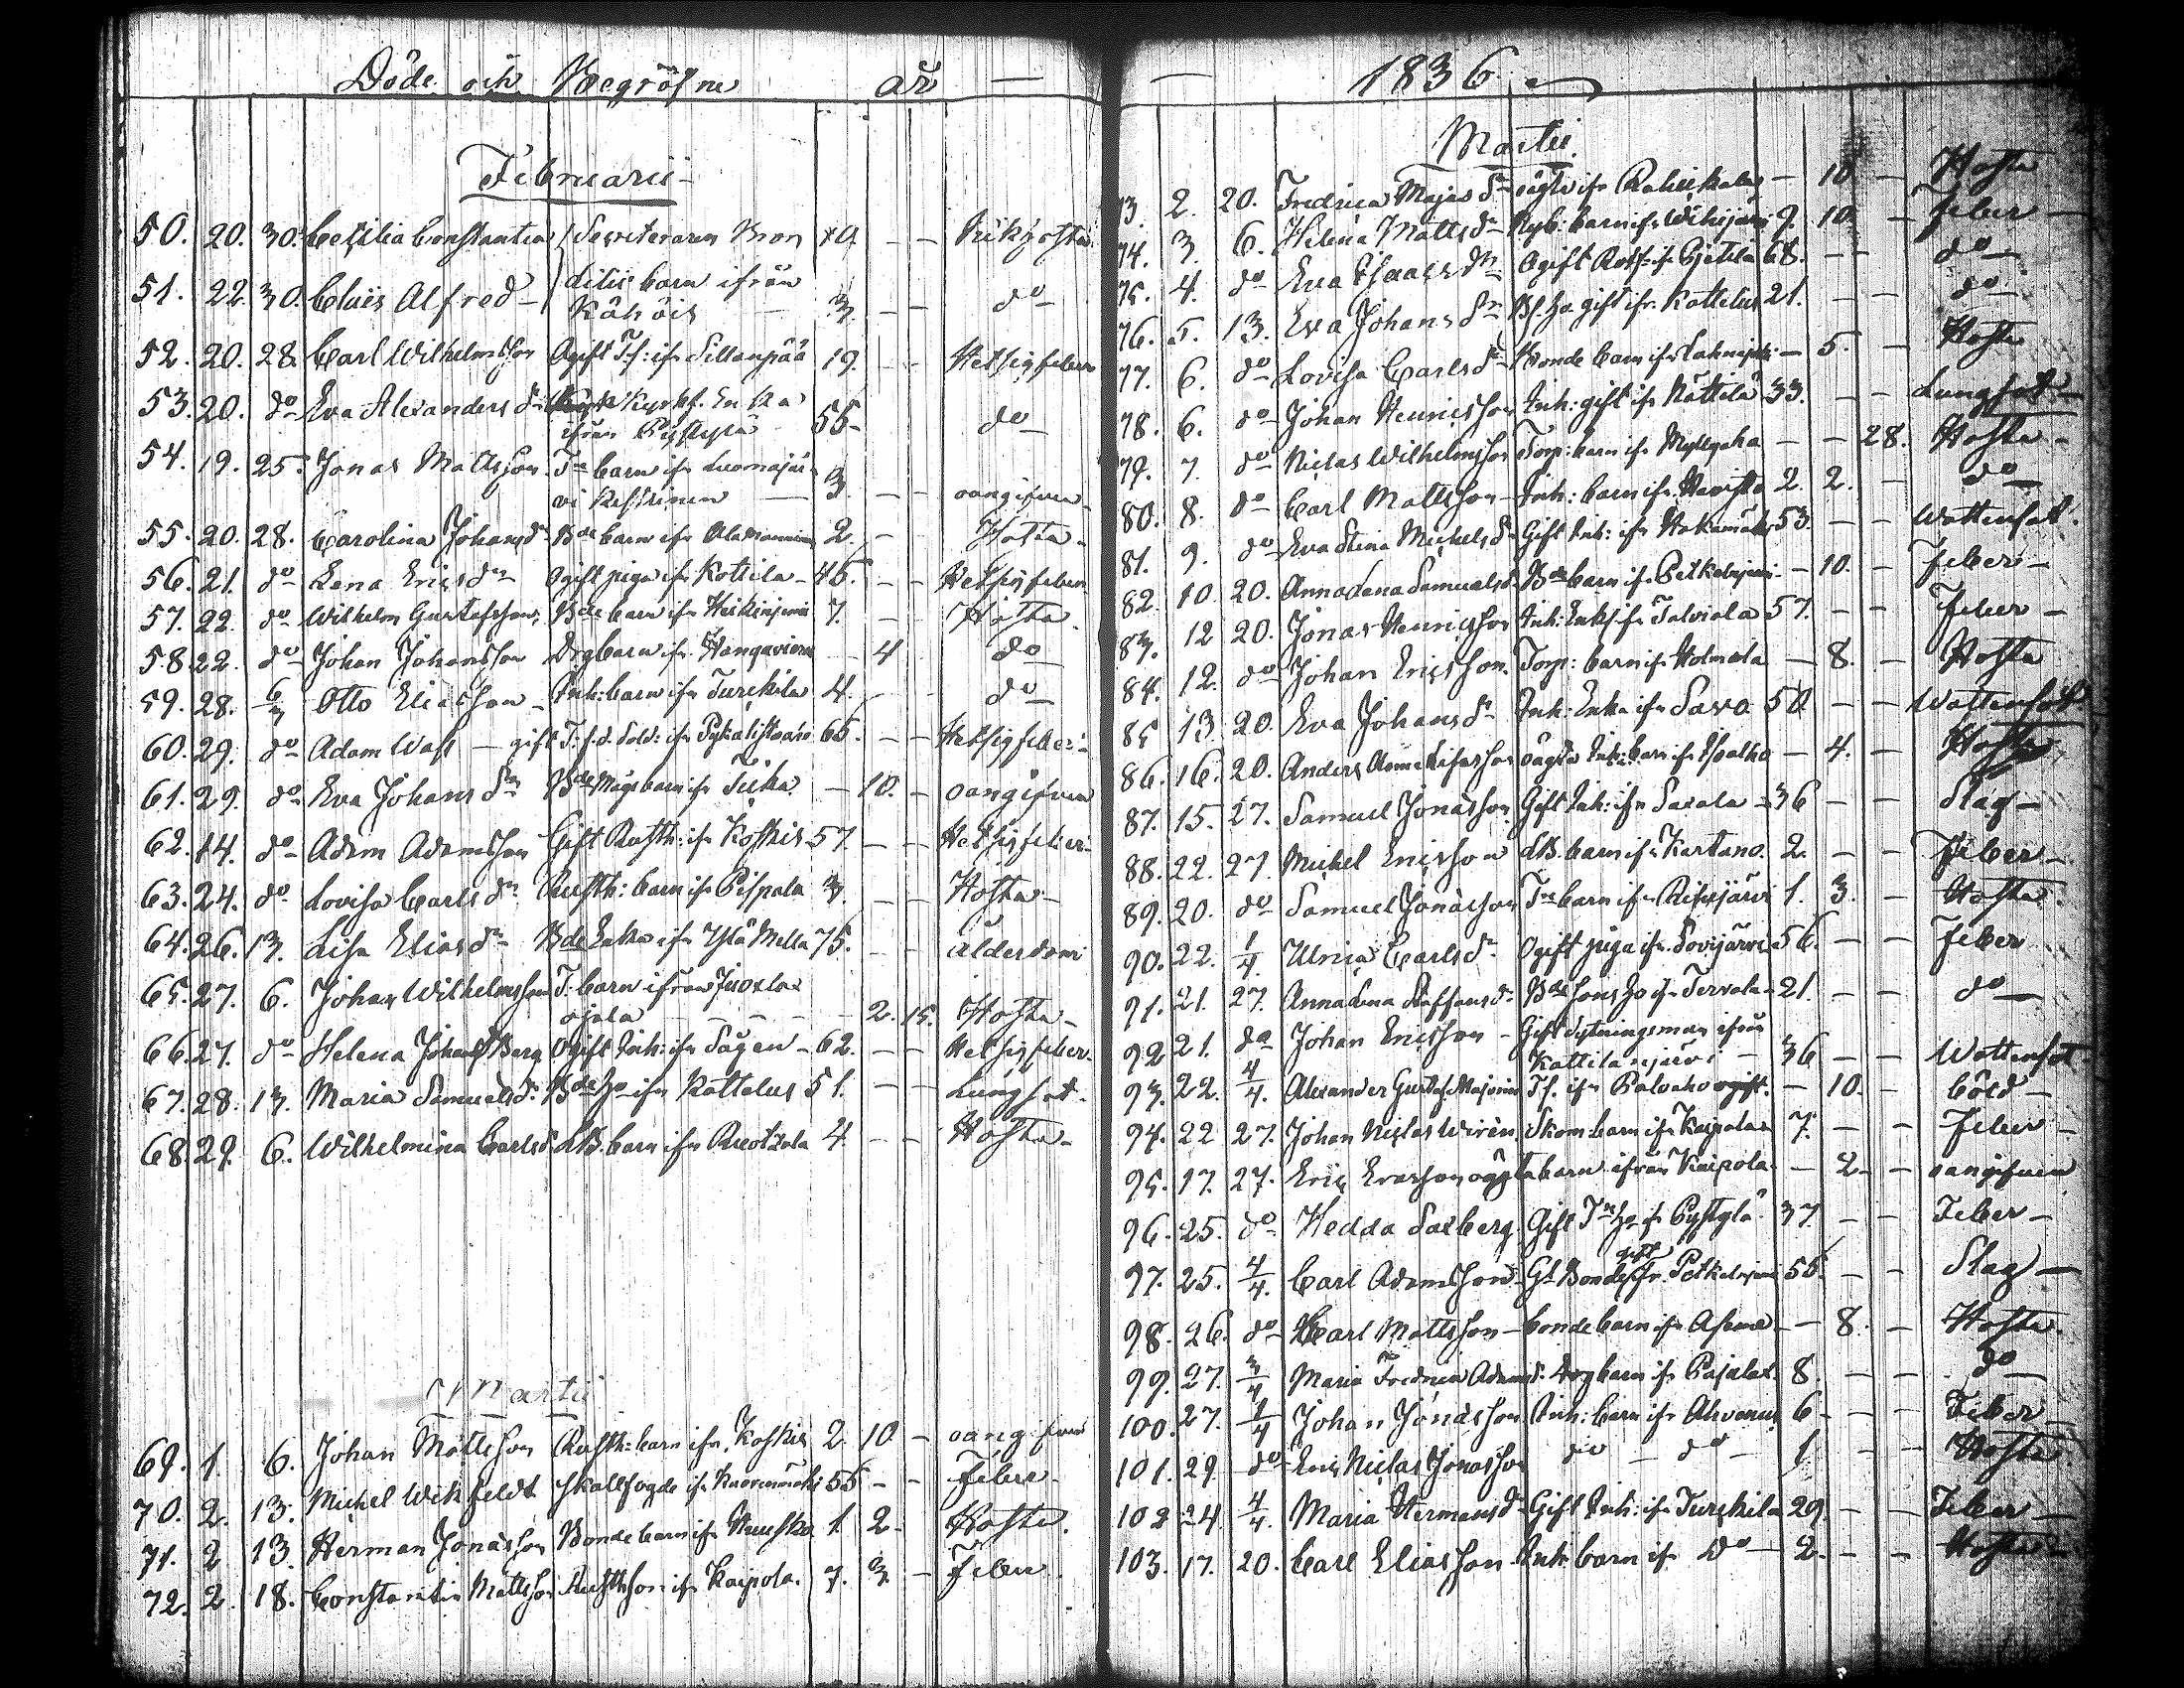 Döde och Begrafne år — 
Februarii
50. 20. 30. Cecilia Constantia Secreteraren Bron 10 — — Kikhosta
51. 22. 30. Claës Alfred — ditii barn ifrån
Kåhöis — 3. — — do
52. 20. 28. Carl Wilhelmsson Ogift T:f: ifr Sillanpää 19. — — Hetsigfeber
53. 20. do Eva Alexandersdr Kyrkf. Enka
ifrån Pystylä 55 — do
54. 19. 25. Jonas Mattsson Tre barn ifr Luomajär
vi Keskinen — 3. — — oangifven
55. 20. 28. Carolina Johansdr Bde barn ifr Alamanninen 2. — Hosta
56. 21. do Lena Ericsdr Ogift piga ifr Kottila 45. — — Hetsigfeber
57. 22. do Wilhelm Gustafsson Bde barn ifr Heikinjemi 7. — Hosta
58. 22. do Johan Johansson Drgbarn ifr Hangaviorn — 4 do
59. 28. 6/3 Otto Eliasson Inh: barn ifr Turckila 4. — do
60. 29. do Adam Wass — gift T:f.d. Sold: ifr 65. — — Hetsigfeber
61. 29. do Eva Johansdr Bde Mågs barn ifr Tiiha — 10. — oangifven
62. 14. do Adam Adamsson Gift Rusth: ifr Koskis 57. — — Hetsigfeber
63. 24. do Lovisa Carlsdr Rusth: barn ifr Pispala 3. — — Hosta
64. 26. 13. Lisa Eliasdr Bde Enka ifr Ylä Mella 75. — — ålderdom
65. 27. 6. Johan Wilhelmsson T: barn ifrån
ojala — — — — — 2. 15. Hosta
66. 27. do Helena Johansdr Berg Ogift Inh: ifr Sågen 62. — — Hetsigfeber
67. 28. 13. Maria Samuelsdr Bde ho ifr Kottelus 51. — — Lungsot
68. 29. 6. Wilhelmina Carlsdr dB. barn ifr Ruotzala 4. — — Hosta
Martii
69. 1. 6. Johan Mattsson Rusth: barn ifr Koskis 2. 10 — oangifven
70. 2. 13. Michel Wikfeldt Skallfogde ifr 55 — — Feber
71. 2. 13. Herman Jonasson Bonde barn ifr 1. 2. Hosta
72. 2. 18. Constantin Mattsson Rusth son ifr Kaipola 7. 3. — Feber
— 1836
Martii
73. 2. 20. Fredrica Majas dr oägta ifr — 10 — Hosta
74. 3. 6. Helena Mattsdr Nyb: barn ifr Wihijärvi 9. 10. — Feber
75. 4. do Eva Isaacsdr Ogift Roth: ifr Pjetilä 68. — — do
76. 5. 13. Eva Johansdr Bf. ho gift ifr Kottelus 21. — — do
77. 6. do Lovisa Carlsdr Bonde barn ifr — 5. — Hosta
78. 6. do Johan Henricsson Inh: gift ifr Kåttilä 33. — — Lungsot
79. 7. do Niclas Wilhelmsson Torp: barn ifr — — 28. Hosta
80. 8. do Carl Mattsson Inh: barn ifr Havisto 2. 2. — do
81. 9. do Eva Stina Michelsdr Gift Inh: ifr 53. — — Wattensot
82. 10 20. Anna Lena Samuelsdr Bde barn ifr Petkelnjemi — 10. — Feber
83. 12 20. Jonas Henricsson Inh: Enkl: ifr Talviala 57. — — Feber
84. 12. do Johan Ericsson Torp: barn ifr Holmala — 8. — Hosta
85 13. 20. Eva Johansdr Inh: Enka ifr Savo 50 — — Wattensot
86. 16. 20. Anders oägta Inh: barn ifr — 4. — Hosta
87. 15. 27. Samuel Jonasson Gift Inh: ifr Savala 36 — — Slag
88. 22. 27. Michel Ericsson dB. barn ifr Kartano 2. — — Feber
89. 20. do Samuel Jonasson Tre barn ifr 1. 3. — Hosta
90. 22. 1/4 Ulrica Carlsdr Ogift piga ifr Sovijärvi 56. — — Feber
91. 21. 27. Anna Lena Staffansdr Bde sons ho ifr Tervala 21. — — do
92 21. do Johan Ericsson — Gift Sytningsman ifrån
Kottilanjärvi — 36 — — Wattensot
93. 22. 4/4. Alexander Gustaf Majorin T:f. ifr Palvaho ogift — 10. — bõld
94. 22 27. Johan Niclas Wirén Skom barn ifr Kaipola 7. — — Feber
95. 17. 27. Eric Evasson oägta barn ifrån Kaipola — 2. — oangifven
96. 25. do Hedda Saxberg Gift Tre ho ifr Pystylä 37 — — Feber
97. 25. 4/4. Carl Adamsson Gl Bonde gift ifr Petkelnjemi 55. — — Slag
98. 26. do Carl Mattsson — bonde barn ifr — 8. — Hosta
99. 27. 3/4 Maria Fredrica Adamsdr Drgbarn ifr Pajalax 8. — — do
100. 27. 1/4 Johan Jonasson Inh: barn ifr Ahvenus 6 — — Feber
101. 29 do Eric Niclas Jonasson do — do — 1 — — Hosta
102 24. 4/4. Maria Hermansdr Gift Inh: ifr Turckila 29. — — Feber
103. 17. 20. Carl Eliasson Inh barn ifr Do 2. — — Hosta